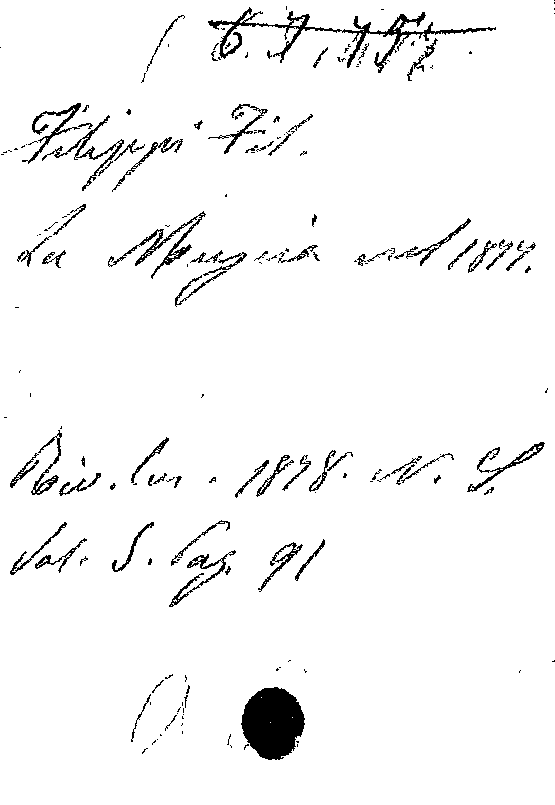 Filippi Fil.
La Musica nel 1877.
Riv. 1878. N. S.
Vol. 5. Pag. 91